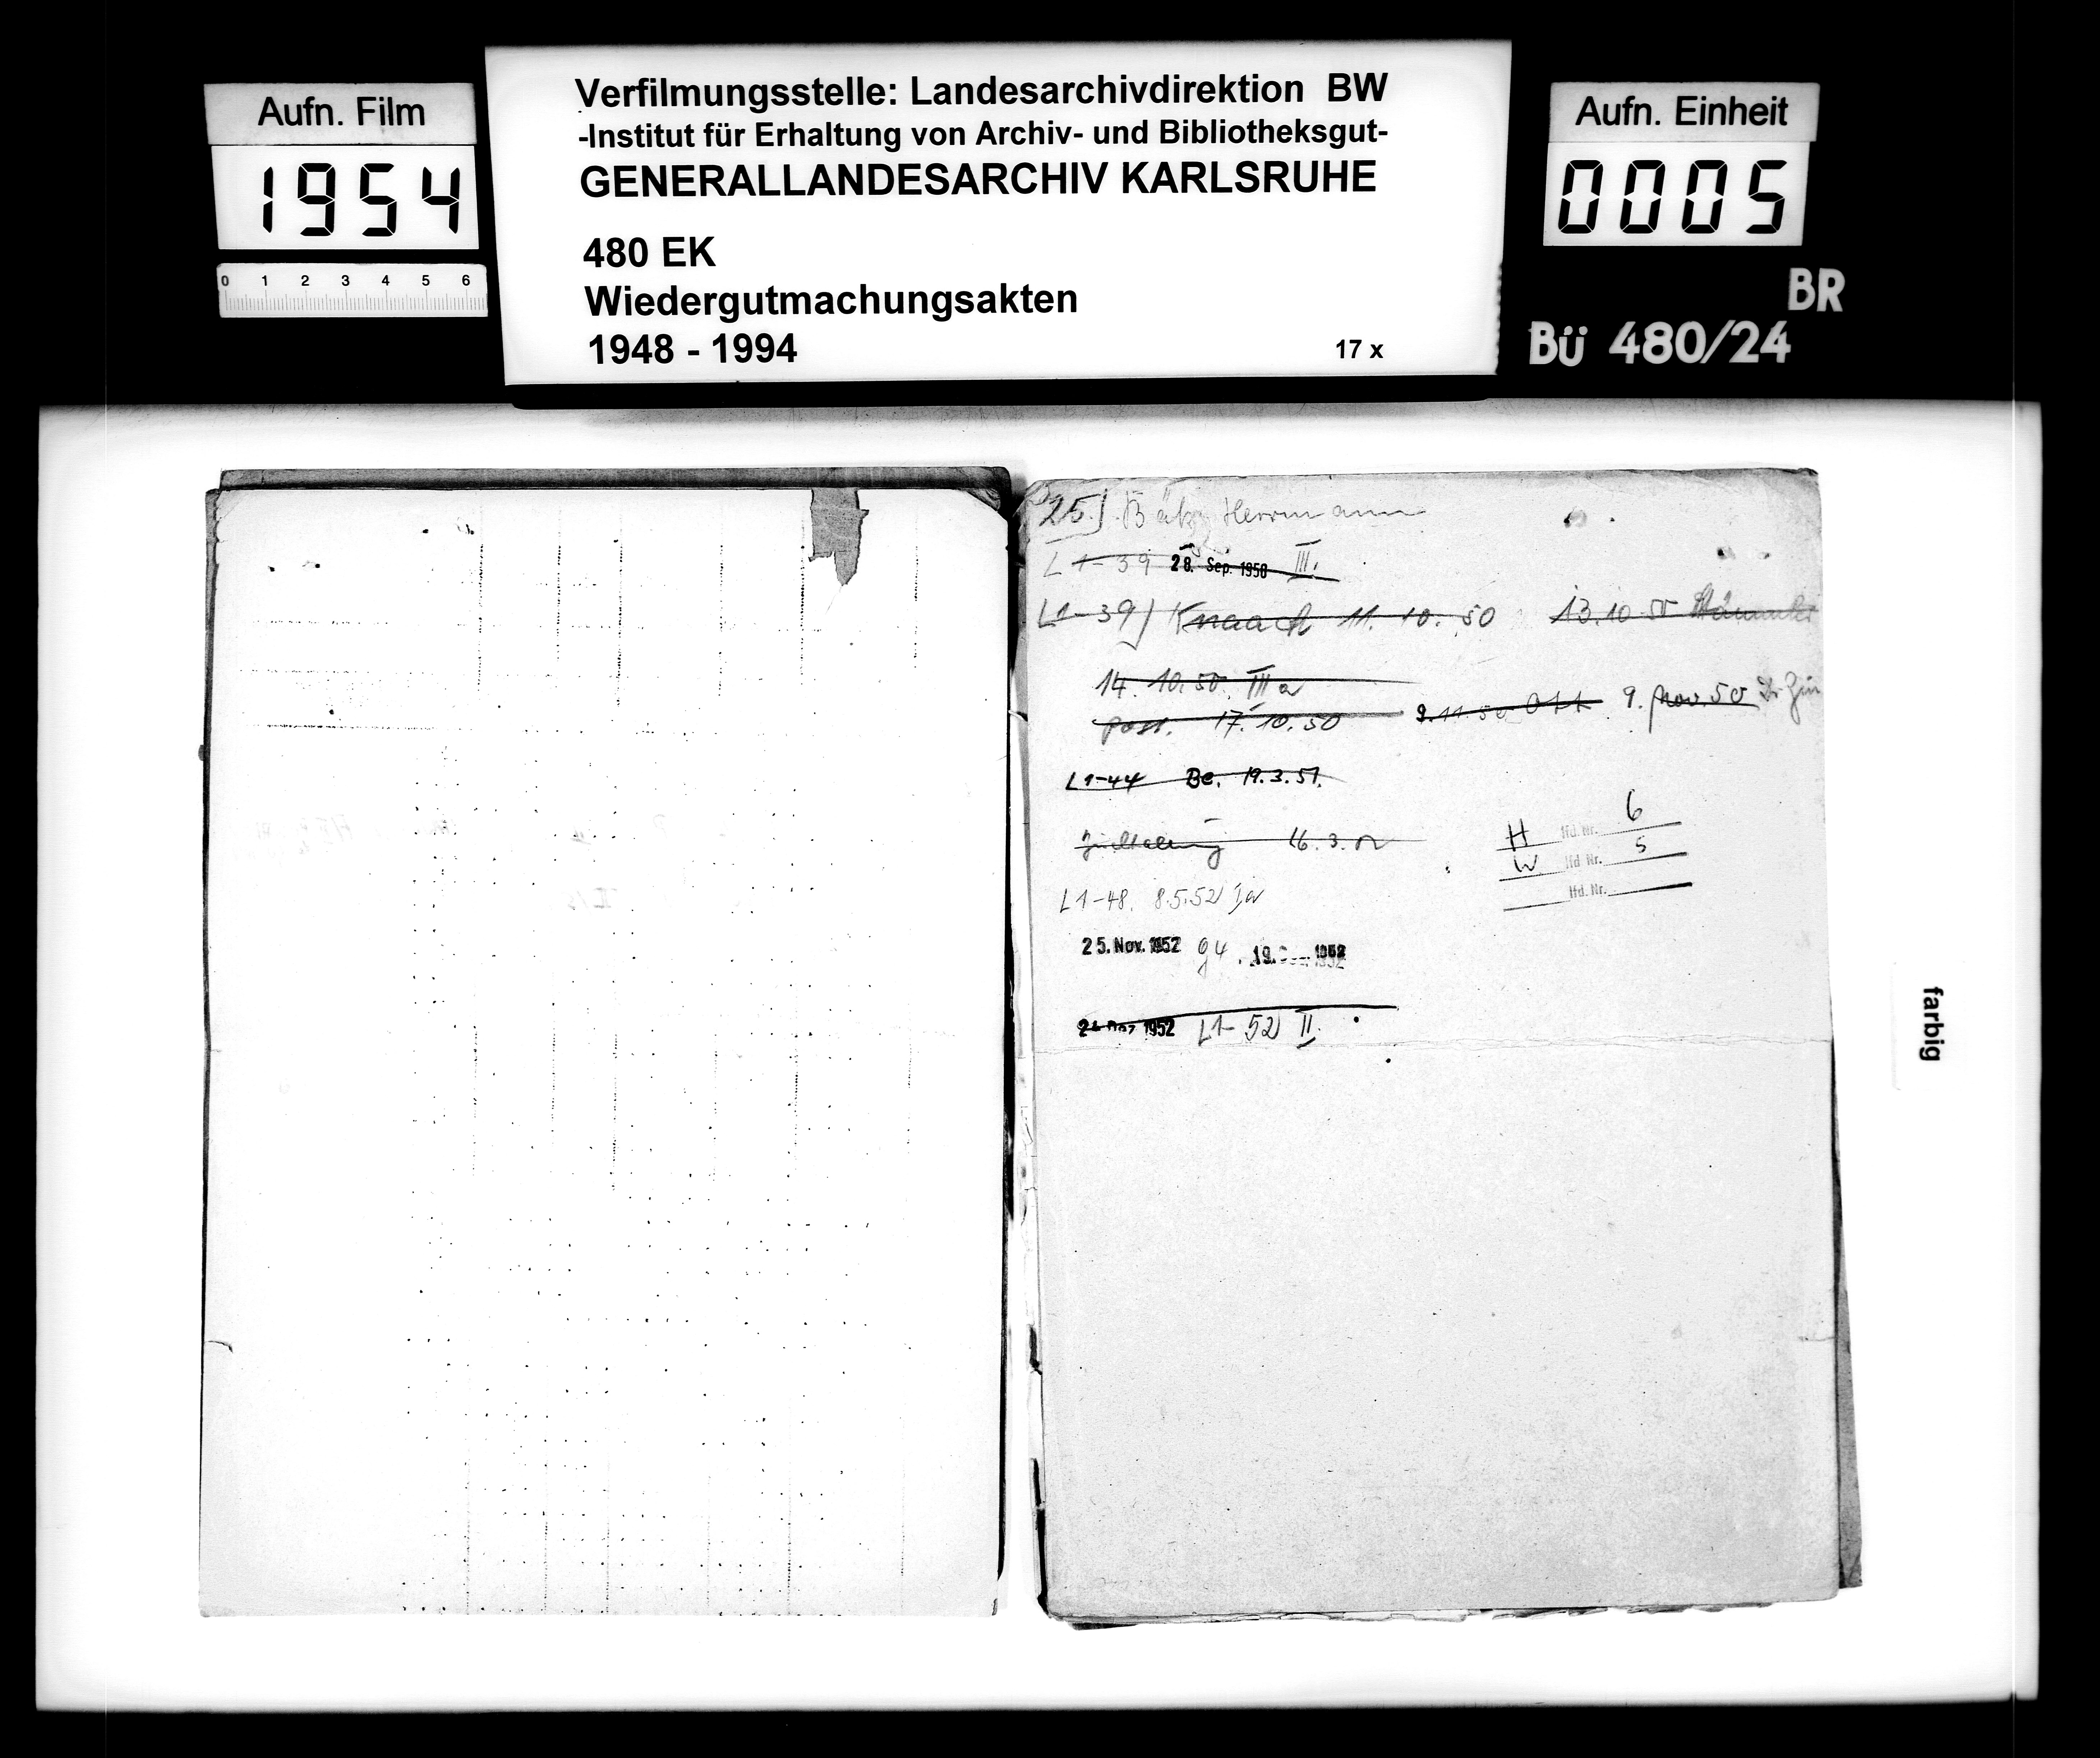 Aufn. Film
1954
0 1 2 3 4 5 6
Verfilmungsstelle: Landesarchivdirektion BW
-Institut für Erhaltung von Archiv- und Bibliotheksgut-
GENERALLANDESARCHIV KARLSRUHE
480 EK
Wiedergutmachungsakten
1948 - 1994
17 x
Aufn. Einheit
0005
BR
Bü 480/24
25.) Bätz Herrmann
L 1-39 28. Sep. 1950 III.
L1-39) Knaack 11. 10. 50 13.10 50
14. 10. 50 III a
17. 10. 50 9.11.50 Ott 9. Nov. 50 Dr.
L1-44 Be. 19.3.51.
16.3.52
H lfd. Nr. 6
W lfd Nr. 5
lfd. Nr.
L1-48. 8.5.52 Ia
25. Nov. 1952 94. 19. 1952
1952 L1-52 II.
farbig